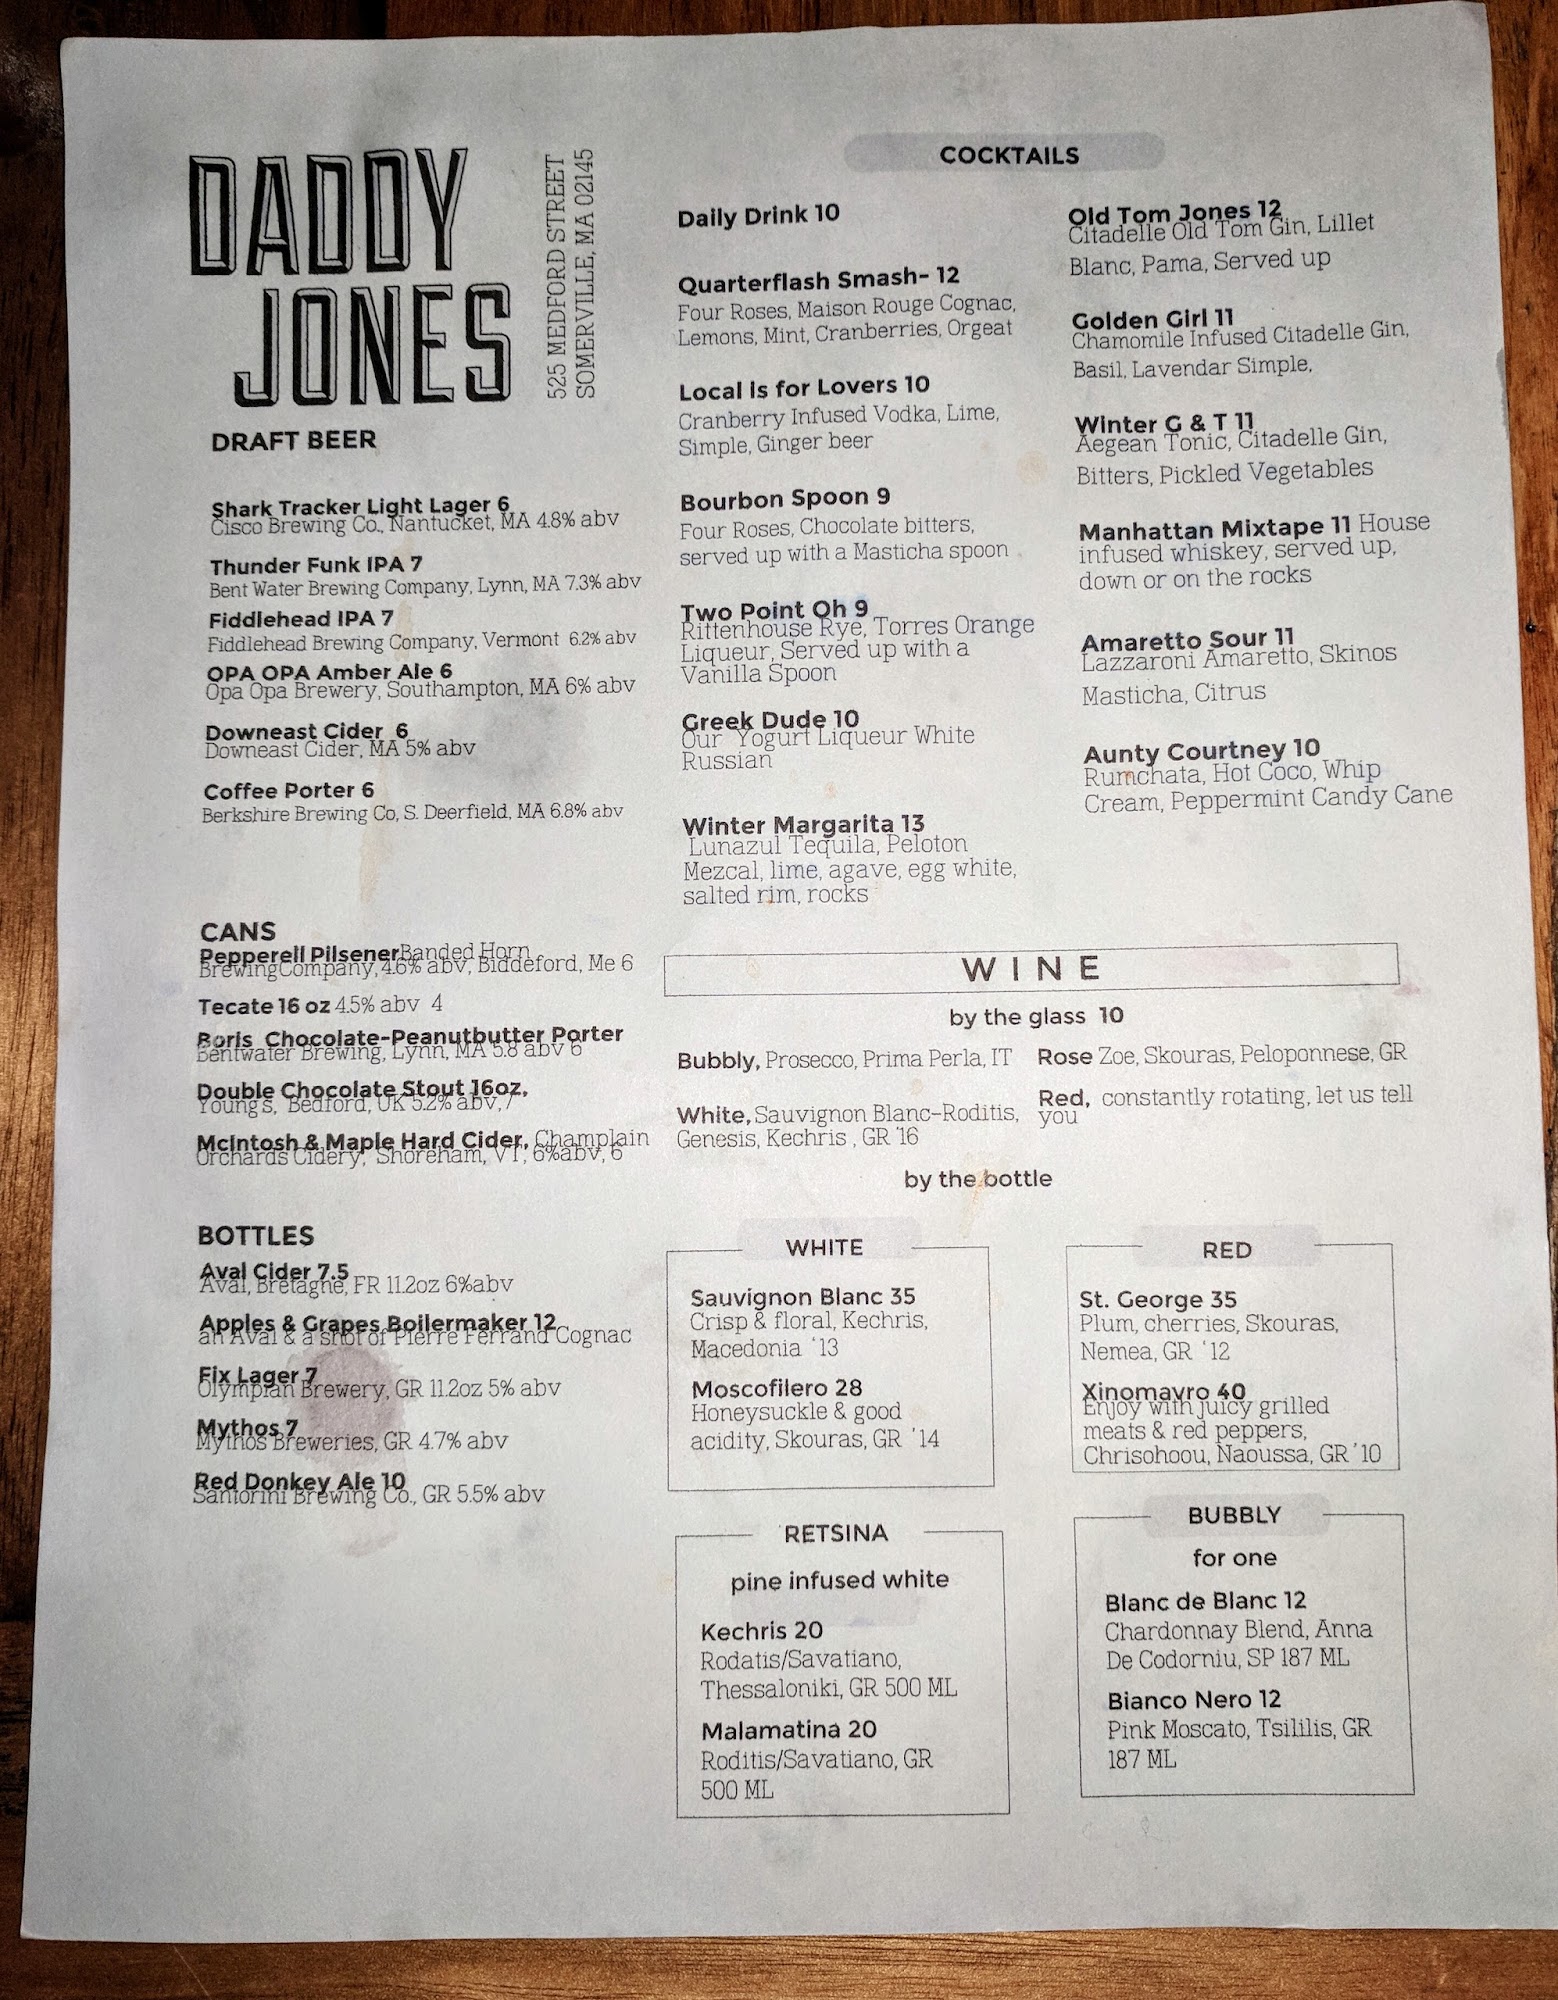 DADDY
JONES
525 MEDFORD STREET
SOMERVILLE, MA 02145
DRAFT BEER
Shark Tracker Light Lager 6
Cisco Brewing Co., Nantucket, MA 4.8% abv
Thunder Funk IPA 7
Bent Water Brewing Company, Lynn, MA 7.3% abv
Fiddlehead IPA 7
Fiddlehead Brewing Company, Vermont 6.2% abv
OPA OPA Amber Ale 6
Opa Opa Brewery, Southampton, MA 6% abv
Downeast Cider 6
Downeast Cider, MA 5% abv
Coffee Porter 6
Berkshire Brewing Co, S. Deerfield, MA 6.8% abv
CANS
Pepperell Pilsener Banded Horn
BrewingCompany, 4.6% abv, Biddeford, Me 6
Tecate 16 oz 4.5% abv 4
Boris Chocolate-Peanutbutter Porter
Bentwater Brewing, Lynn, MA 5.8 abv 6
Double Chocolate Stout 16oz,
Young's, Bedford, UK 5.2% abv,7
McIntosh & Maple Hard Cider, Champlain
Orchards Cidery, Shoreham, VT, 6%abv, 6
BOTTLES
Aval Cider 7.5
Aval, Bretagne, FR 11.2oz 6%abv
Apples & Grapes Boilermaker 12
an Aval & a shot of Pierre Ferrand Cognac
Fix Lager 7
Olympian Brewery, GR 11.2oz 5% abv
Mythos 7
Mythos Breweries, GR 4.7% abv
Red Donkey Ale 10
Santorini Brewing Co., GR 5.5% abv
COCKTAILS
Daily Drink 10
Quarterflash Smash- 12
Four Roses, Maison Rouge Cognac,
Lemons, Mint, Cranberries, Orgeat
Local is for Lovers 10
Cranberry Infused Vodka, Lime,
Simple, Ginger beer
Bourbon Spoon 9
Four Roses, Chocolate bitters,
served up with a Masticha spoon
Two Point Oh 9
Rittenhouse Rye, Torres Orange
Liqueur, Served up with a
Vanilla Spoon
Greek Dude 10
Our Yogurt Liqueur White
Russian
Winter Margarita 13
Lunazul Tequila, Peloton
Mezcal, lime, agave, egg white,
salted rim, rocks
Old Tom Jones 12
Citadelle Old Tom Gin, Lillet
Blanc, Pama, Served up
Golden Girl 11
Chamomile Infused Citadelle Gin,
Basil, Lavendar Simple,
Winter G & T 11
Aegean Tonic, Citadelle Gin,
Bitters, Pickled Vegetables
Manhattan Mixtape 11 House
infused whiskey, served up,
down or on the rocks
Amaretto Sour 11
Lazzaroni Amaretto, Skinos
Masticha, Citrus
Aunty Courtney 10
Rumchata, Hot Coco, Whip
Cream, Peppermint Candy Cane
WINE
by the glass 10
Bubbly, Prosecco, Prima Perla, IT
White, Sauvignon Blanc-Roditis,
Genesis, Kechris , GR '16
Rose Zoe, Skouras, Peloponnese, GR
Red, constantly rotating, let us tell
you
by the bottle
WHITE
Sauvignon Blanc 35
Crisp & floral, Kechris,
Macedonia '13
Moscofilero 28
Honeysuckle & good
acidity, Skouras, GR '14
RED
St. George 35
Plum, cherries, Skouras,
Nemea, GR '12
Xinomavro 40
Enjoy with juicy grilled
meats & red peppers,
Chrisohoou, Naoussa, GR '10
RETSINA
pine infused white
Kechris 20
Rodatis/Savatiano,
Thessaloniki, GR 500 ML
Malamatina 20
Roditis/Savatiano, GR
500 ML
BUBBLY
for one
Blanc de Blanc 12
Chardonnay Blend, Anna
De Codorniu, SP 187 ML
Bianco Nero 12
Pink Moscato, Tsililis, GR
187 ML